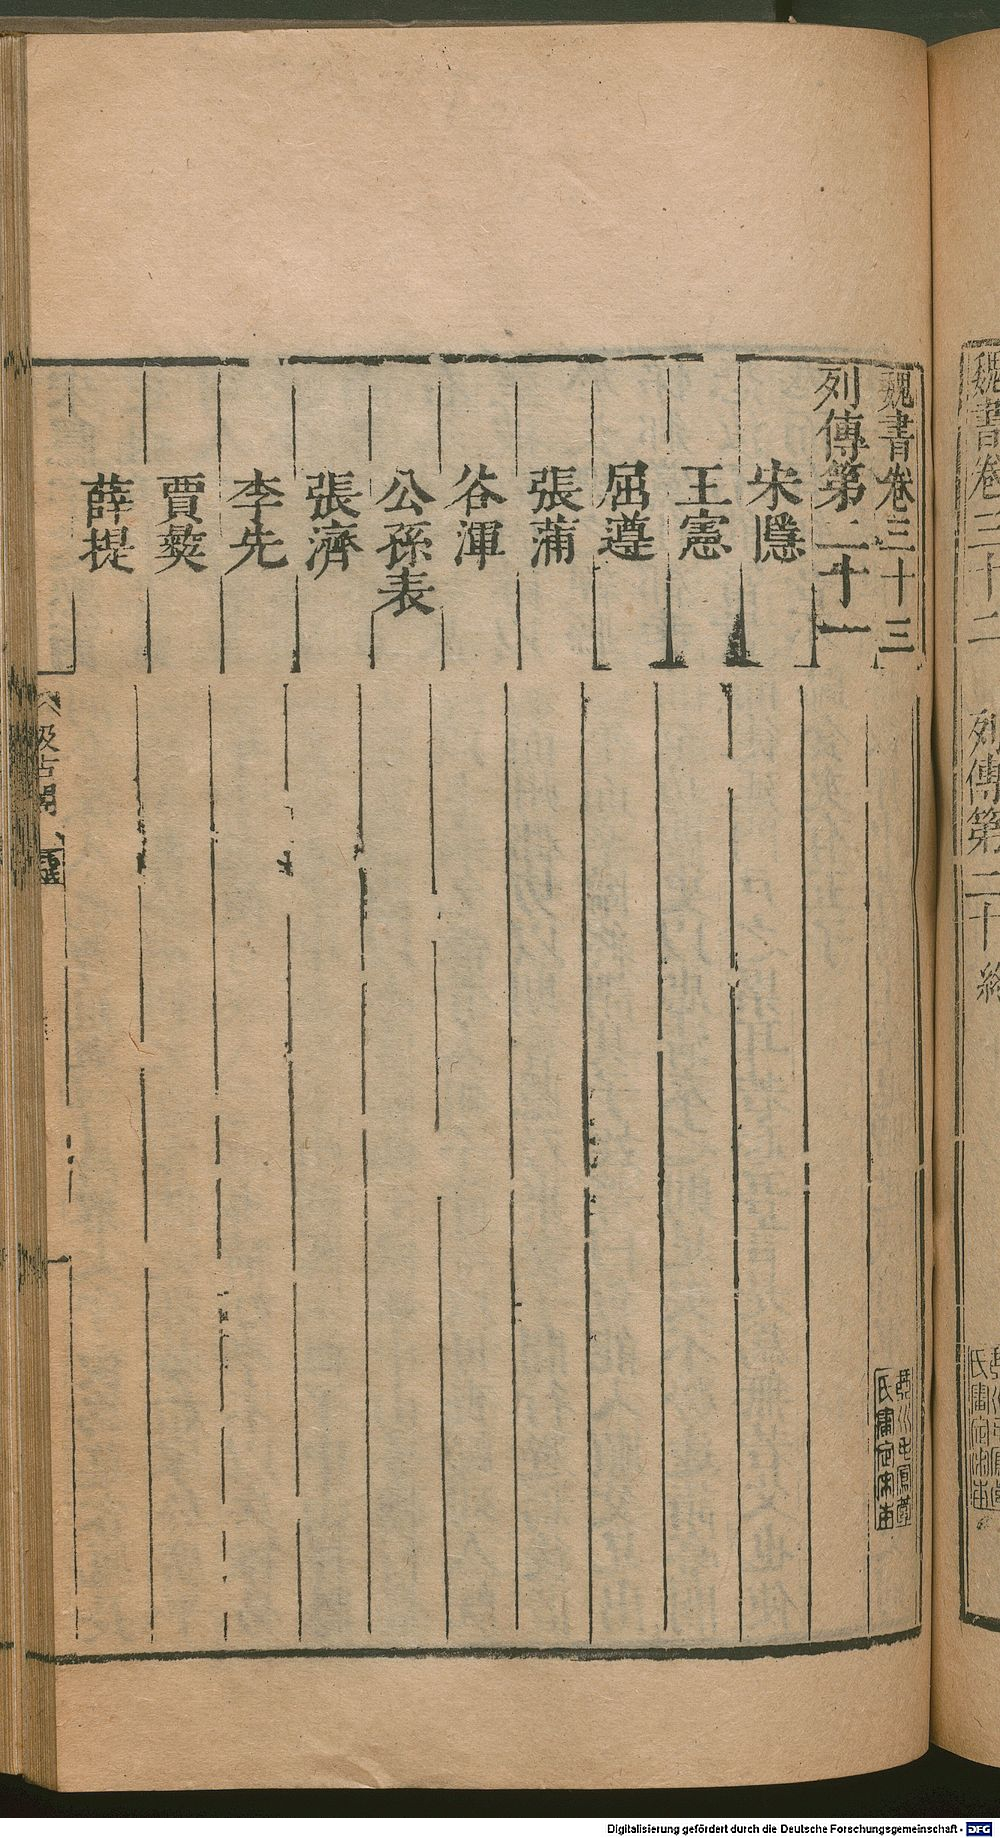 魏書卷三十三
列傳第二十一
宋隱
王憲
屈遵
張蒲
谷渾
公孫表
張濟
李先
賈彝
薛提
汲古閣
魏書卷三十二 列傳第二十 終
Digitalisierung gefördert durch die Deutsche Forschungsgemeinschaft - DFG